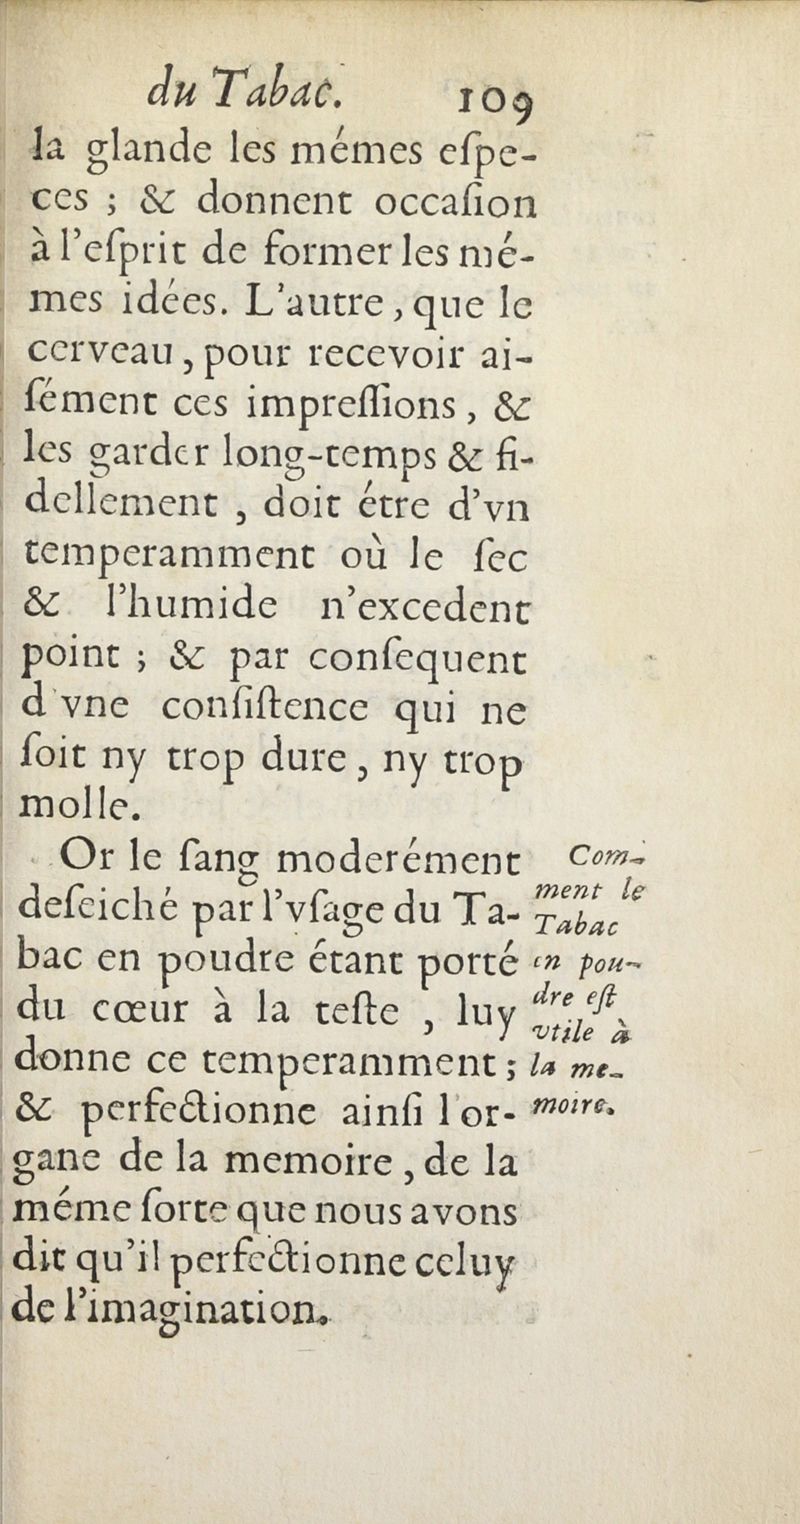 du Tabac. 109
la glande les mémes eſpe-
ces ; & donnent occaſion
à l'eſprit de former les mé-
mes idées. L'autre, que le
cerveau, pour recevoir ai-
ſément ces impreſſions, &
les garder long-temps & fi-
dellement , doit étre d'vn
temperamment où le ſec
& l'humide n'excedent
point ; & par conſequent
d'vne conſiſtence qui ne
ſoit ny trop dure, ny trop
molle.
Or le ſang moderément
deſeiché par l'vſage du Ta-
bac en poudre étant porté
du cœur à la teſte , luy
donne ce temperamment ;
& perfectionne ainſi l'or-
gane de la memoire, de la
méme ſorte que nous avons
dit qu'il perfectionne celuy
de l'imagination.
Com-
ment le
Tabac
en pou-
dre eſt
vtile à
la me-
moire.